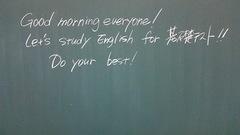 Good morning everyone!
Let's study English for 基礎テスト!!
Do your best!